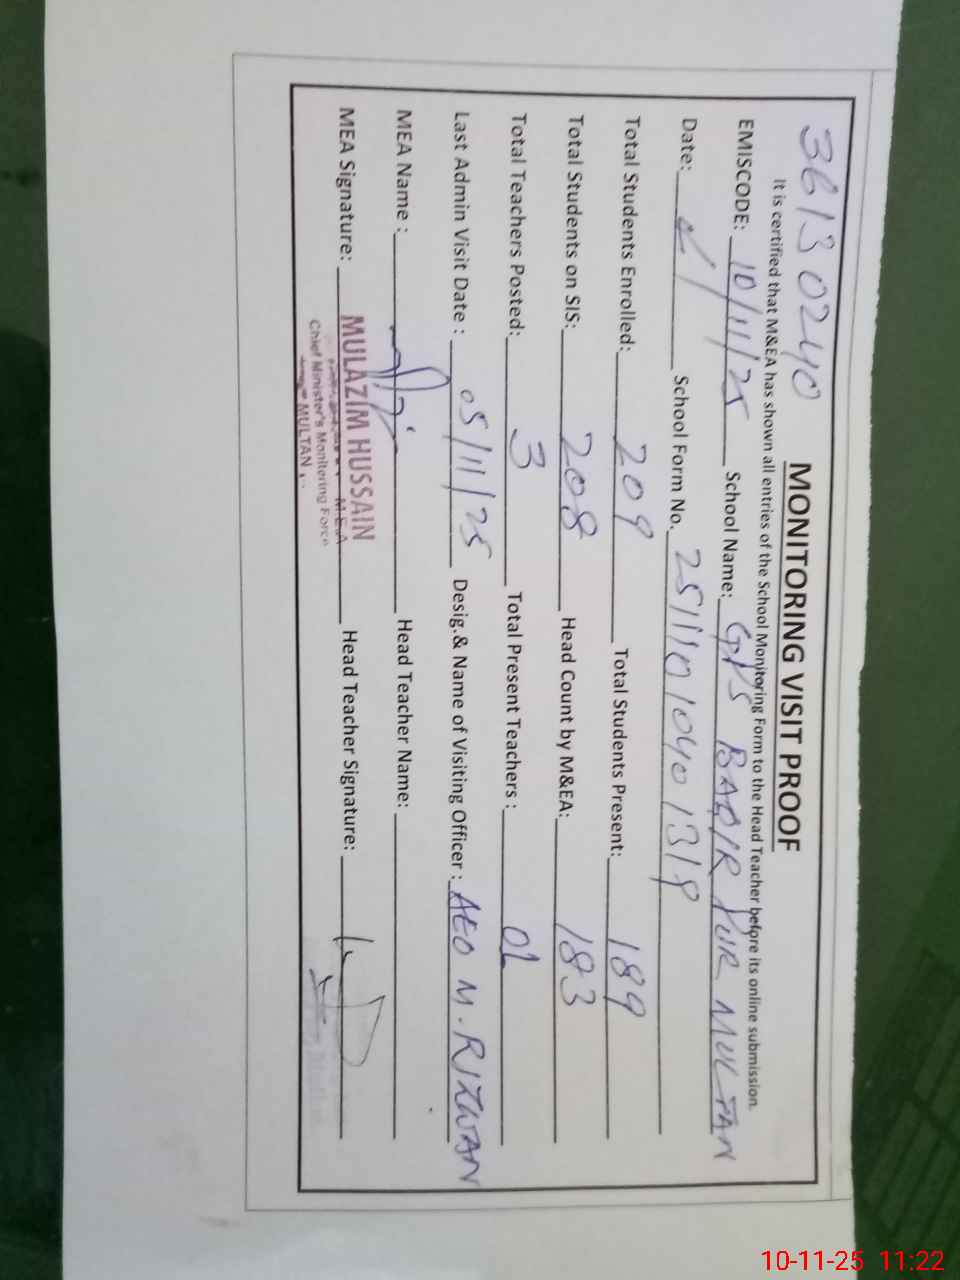 36130240
MONITORING VISIT PROOF
It is certified that M&EA has shown all entries of the School Monitoring Form to the Head Teacher before its online submission.
EMISCODE: 10/11/25 School Name: GPS BADIR PUR MULTAN
Date: School Form No. 2511101040 1319
Total Students Enrolled: 209 Total Students Present: 189
Total Students on SIS: 208 Head Count by M&EA: 183
Total Teachers Posted: 3 Total Present Teachers :
Last Admin Visit Date : 05/11/25 Desig.& Name of Visiting Officer : AEO M. RIZWAN
MEA Name : Head Teacher Name:
MEA Signature: Head Teacher Signature:
MULAZIM HUSSAIN
M.E.A
Chief Minister's Monitoring Force
MULTAN
10-11-25 11:22